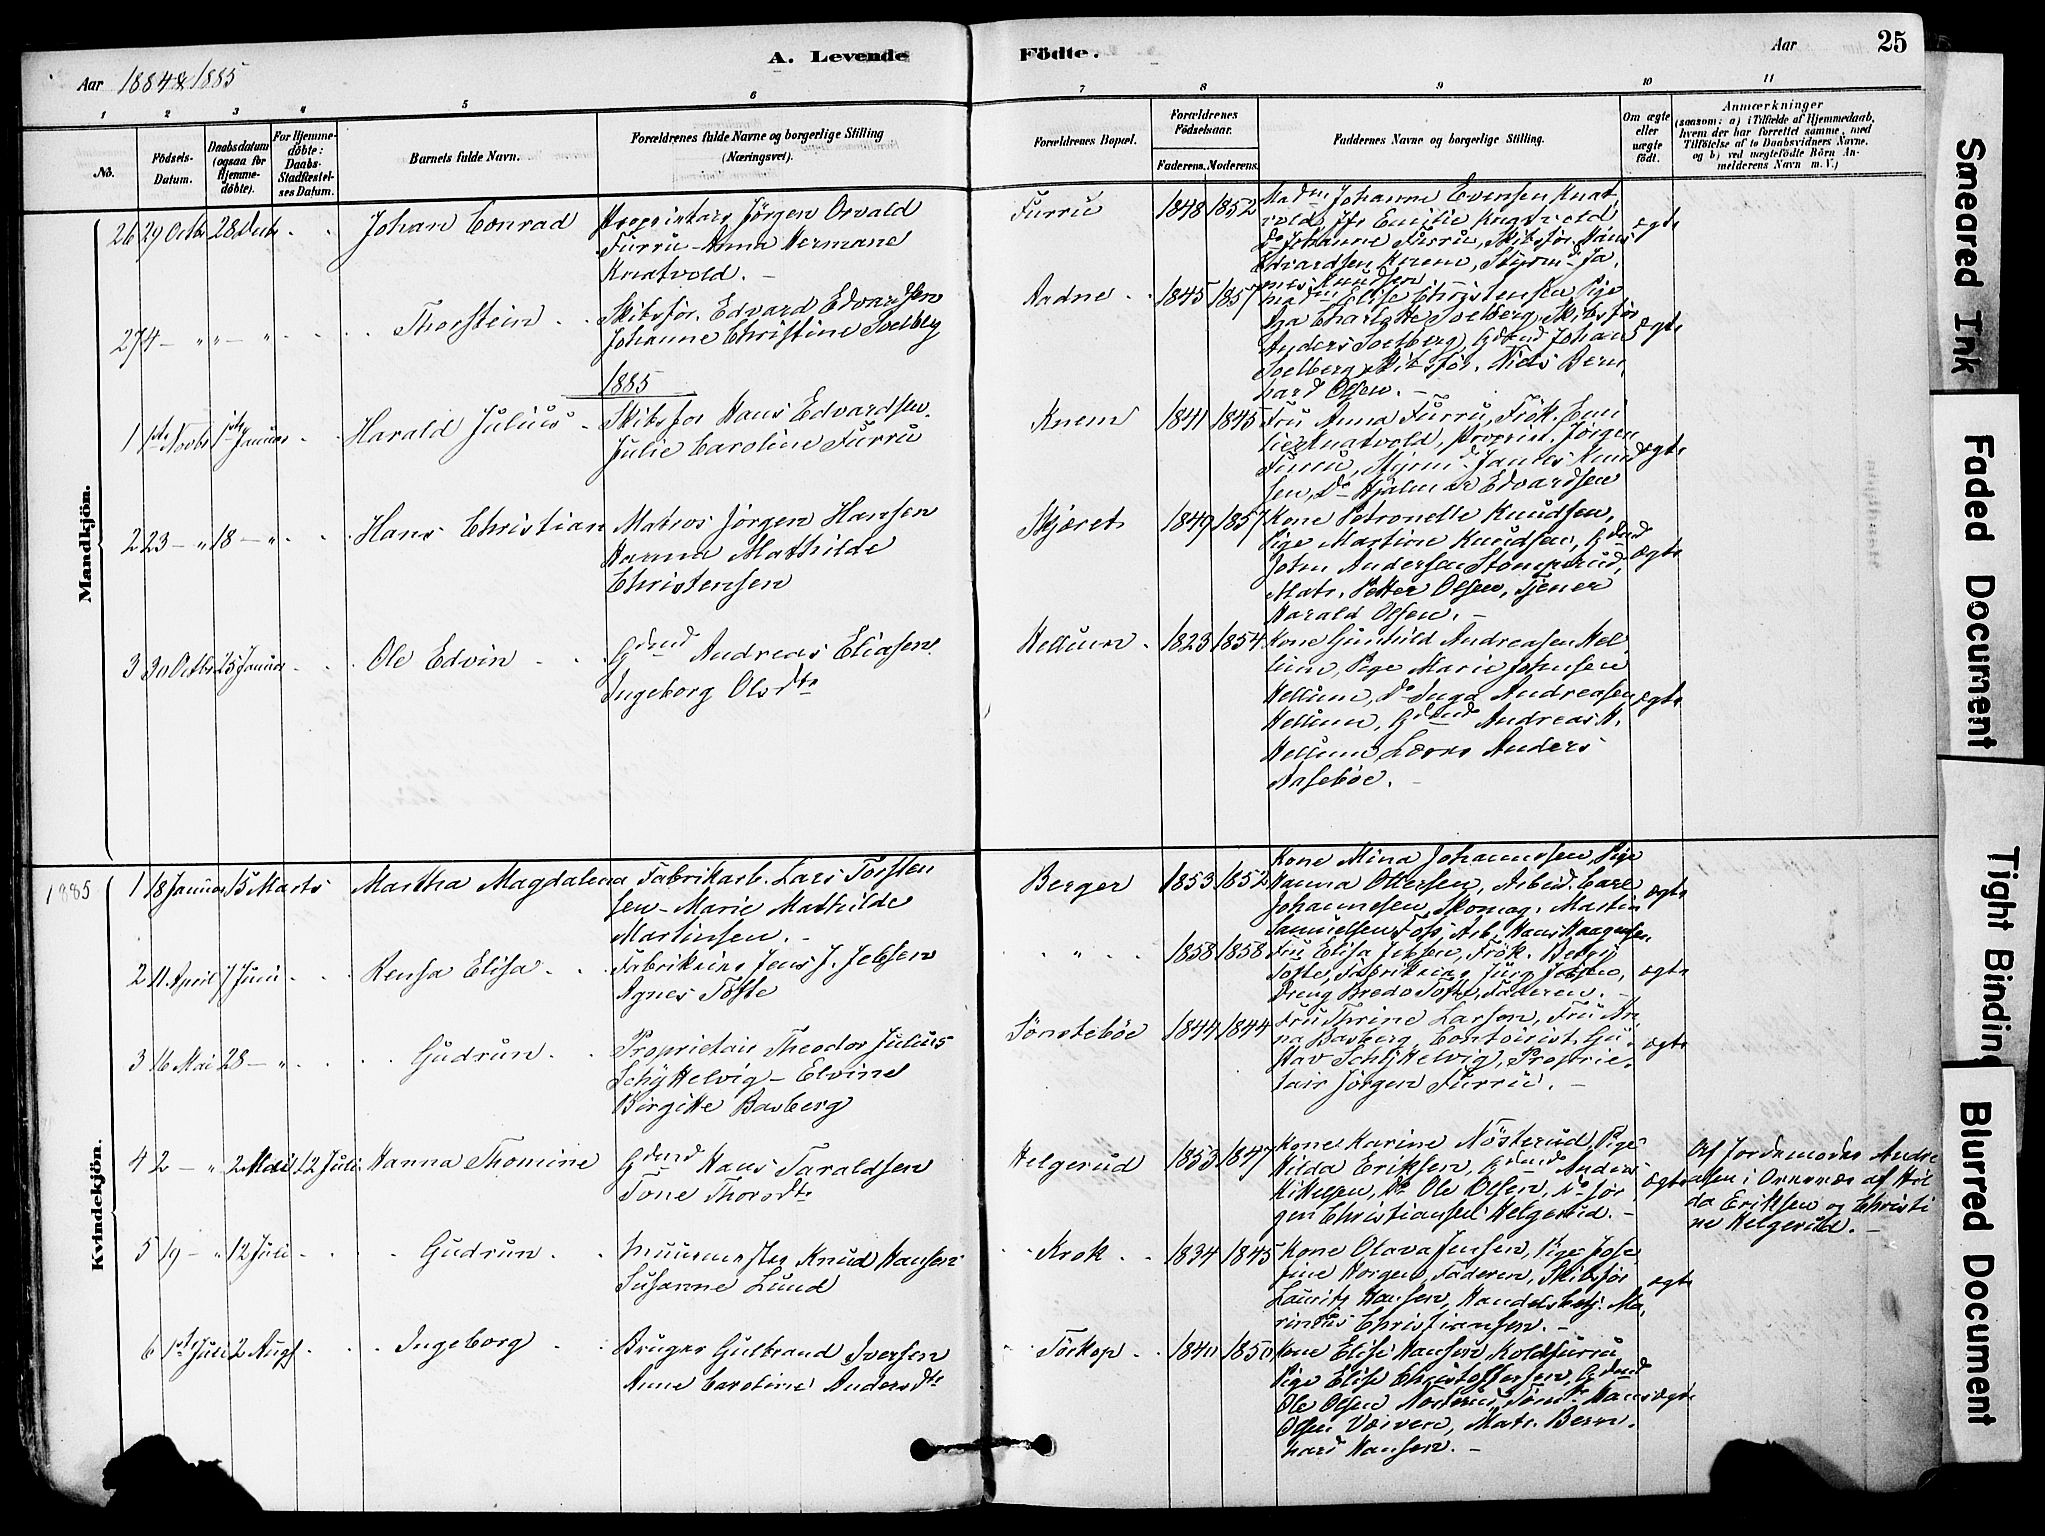 A. Levende Födte.
Aar 1884 & 1885
Aar 25
1 2 3 4 5 6 7 8 9 10 11
No.
Födsels-Datum.
Daabsdatum (ogsaa for Hjemmedöbte).
For Hjemmedöbte: Daabs-Stadfæstelses Datum.
Barnets fulde Navn.
Forældrenes fulde Navne og borgerlige Stilling (Næringsvei).
Forældrenes Bopæl.
Forældrenes Födselsaar.
Faderens. Moderens.
Faddernes Navne og borgerlige Stilling.
Om ægte eller uægte födt.
Anmærkninger (saasom: a) i Tilfælde af Hjemmedaab, hvem der har forrettet samme, med Tilföielse af to Daabsvidners Navne. og b) ved uægtefödte Börn Anmelderens Navn m. V.)
Mandkjön.
26 29 Octbr 28 Decbr Johan Conrad
Proprietær Jörgen Osvald
Furru - Anna Hermane
Knatvold. -
Furru 1848 1852
Madm Johanne Evensen Knat
vold, Jfr Emilie Knatvold
Do Johanne Furru, Skibsför. Hans
Edvardsen Knem, Styrmd Ja
nes Knudsen
ægte
27 4 - " " - " Thorstein
Skibsför. Edvard Edvardsen
Johanne Christine Soelberg
Aadne 1845 1857
Madm Elise Christensen Pige
Charlotte Soelberg, Skibsför
Anders Soelberg, Johan
Soelberg, Skibsför. Niels Bern
hard Olsen. -
ægte
1885
1 1ste Novbr 1ste Januar Harald Julius
Skibsför Hans Edvardsen
Julie Caroline Furru
Knem 1841 1845
Fru Anna Furru, Frök. Emi
lie Knatvold, Propriet. Jörgen
Furru, Styrmd James Knud
sen, Do Hjalmar Edvardsen
ægte
2 23 - " 18 - " Hans Christian
Matros Jörgen Hansen
Hanna Mathilde
Christensen
Skjæret 1849 1857
Kone Petronelle Knudsen,
Pige Martine Knudsen, Gdmd
John Andersen Stomperud,
Matr. Petter Olsen, Tjener
Harald Olsen. -
ægte
3 30 Octbr 25 Januar Ole Edvin
Gdmd Andreas Eliasen
Ingeborg Olsdtr
Hellum 1823 1854
Kone Gunhild Andreasen Hel
lum, Pige Marie Johnsen
Hellum, Do Inga Andreasen
Hellum, Gdmd Andreas H.
Hellum, Anders
Aasebøe. -
ægte
Kvindekjön.
1885
1 18 Januar 15 Marts Martha Magdalena
Fabrikarb. Lars Torsten
sen - Marie Mathilde
Martinsen. -
Berger 1853 1852
Kone Mina Johannesen, Pige
Hanna Ottersen, Arbeid. Carl
Johannesen, Skomag. Martin
Samuelsen Foss Arb. Hans Haagensen
ægte
2 11 April 7 Juni Rensa Elisa
Fabrikeier Jens J. Jebsen
Agnes Tofte
" 1858 1858
Fru Elisa Jebsen, Frök.
Tofte, Jürg Jebsen,
Dreng Bredo Tofte, Faderen. -
ægte
3 16 Mai 28 - " Gudrun
Proprietair Theodor Julius
Schÿttelvig - Elvine
Birgitte Basberg
Sönstebøe 1844 1844
Fru Thrine Larson, Fru An
na Basberg, Contorist. Gu
stav Schÿttelvig, Proprie
tair Jörgen Furru. -
ægte
4 2 - " 2 Mai 12 Juli Hanna Thomine
Gdmd Hans Taraldsen
Tone Thorsdtr
Helgerud 1853 1847
Kone Karine Nösterud, Pige
Hilda Eriksen, Gdmd Anders
Do Ole Olsen, Do Jör
gen Christiansen Helgerud. -
ægte
Af Jordemoder Andre
asen i Ornenæs af Hil
da Eriksen og Christi
ne Helgerud. -
5 19 - " 12 Juli Gudrun
Muurmester Knud Hansen
Susanne Lund
Krok 1834 1845
Kone Olava Jensen, Pige Jose
fine Horgen, Faderen, Skibsför
Lauritz Hansen, Handelsbetj. Ma
rinius Christiansen. -
ægte
6 1ste Juli 2 Augs Ingeborg
Bruger Gulbrand Iversen
Anne Caroline Andersdtr
Törkop 1840 1850
Kone Elise Hansen Koldfurru
Pige Elise Christoffersen, Gdmd
Ole Olsen Nösterud, Hans
Olsen Værven, Matr. Bern
hard Hansen. -
ægte
Smeared Ink
Faded Document
Tight Binding
Blurred Document